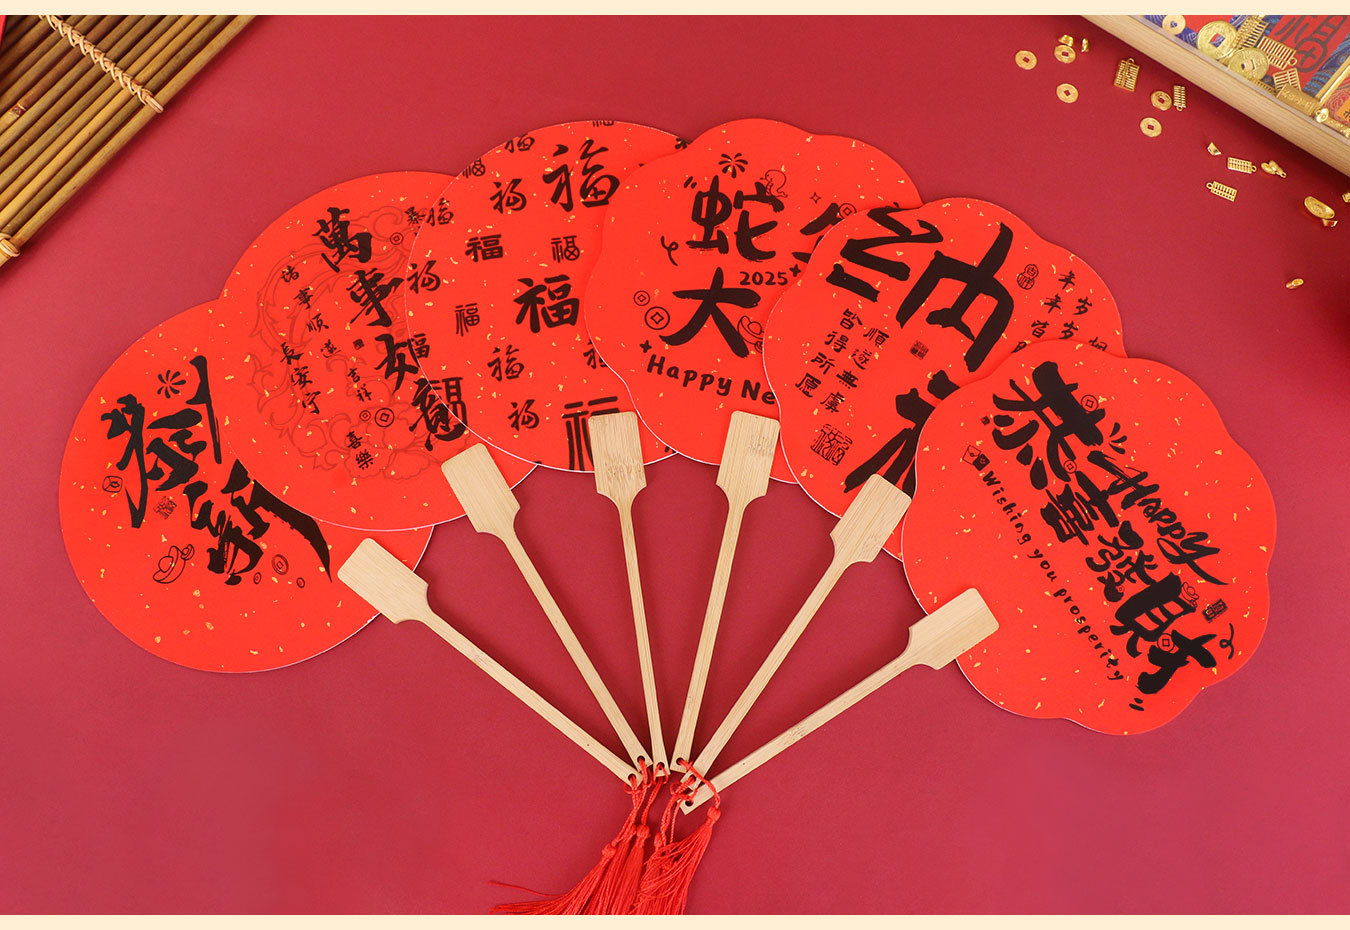 萬事如意
諸事順遂
長安寧
吉祥
喜樂
福
福
福
福
福
福
福
福
福
福
福
福
蛇
大
2025
Happy Ne
納
順遂無虞
皆得所愿
岁岁
年年
恭喜發財
Happy
Wishing you prosperity